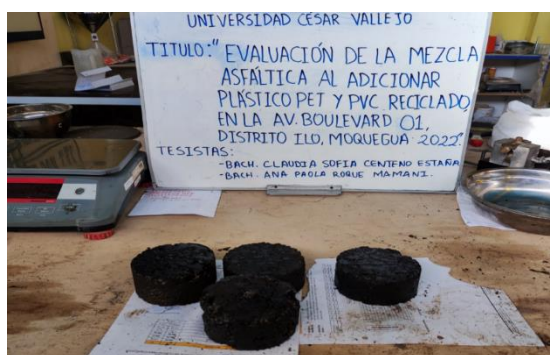 UNIVERSIDAD CÉSAR VALLEJO
TITULO:" EVALUACIÓN DE LA MEZCLA
ASFÁLTICA AL ADICIONAR
PLÁSTICO PET Y PVC RECICLADO,
EN LA AV. BOULEVARD 01,
DISTRITO ILO, MOQUEGUA 2022".
TESISTAS:
-BACH. CLAUDIA SOFIA CENTENO ESTAÑA
-BACH. ANA PAOLA ROQUE MAMANI.